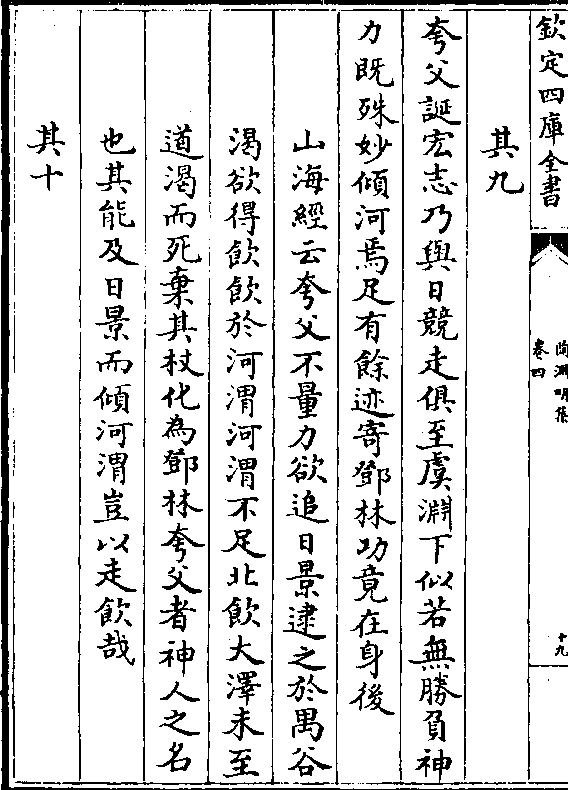 欽定四庫全書
陶淵明集
卷四
十九
其九
夸父誕宏志乃與日競走俱至虞淵下似若無勝負神
力既殊妙傾河焉足有餘迹寄鄧林功竟在身後
山海經云夸父不量力欲追日景逮之於禺谷
渴欲得飲飲於河渭河渭不足北飲大澤未至
道渴而死棄其杖化為鄧林夸父者神人之名
也其能及日景而傾河渭豈以走飲哉
其十